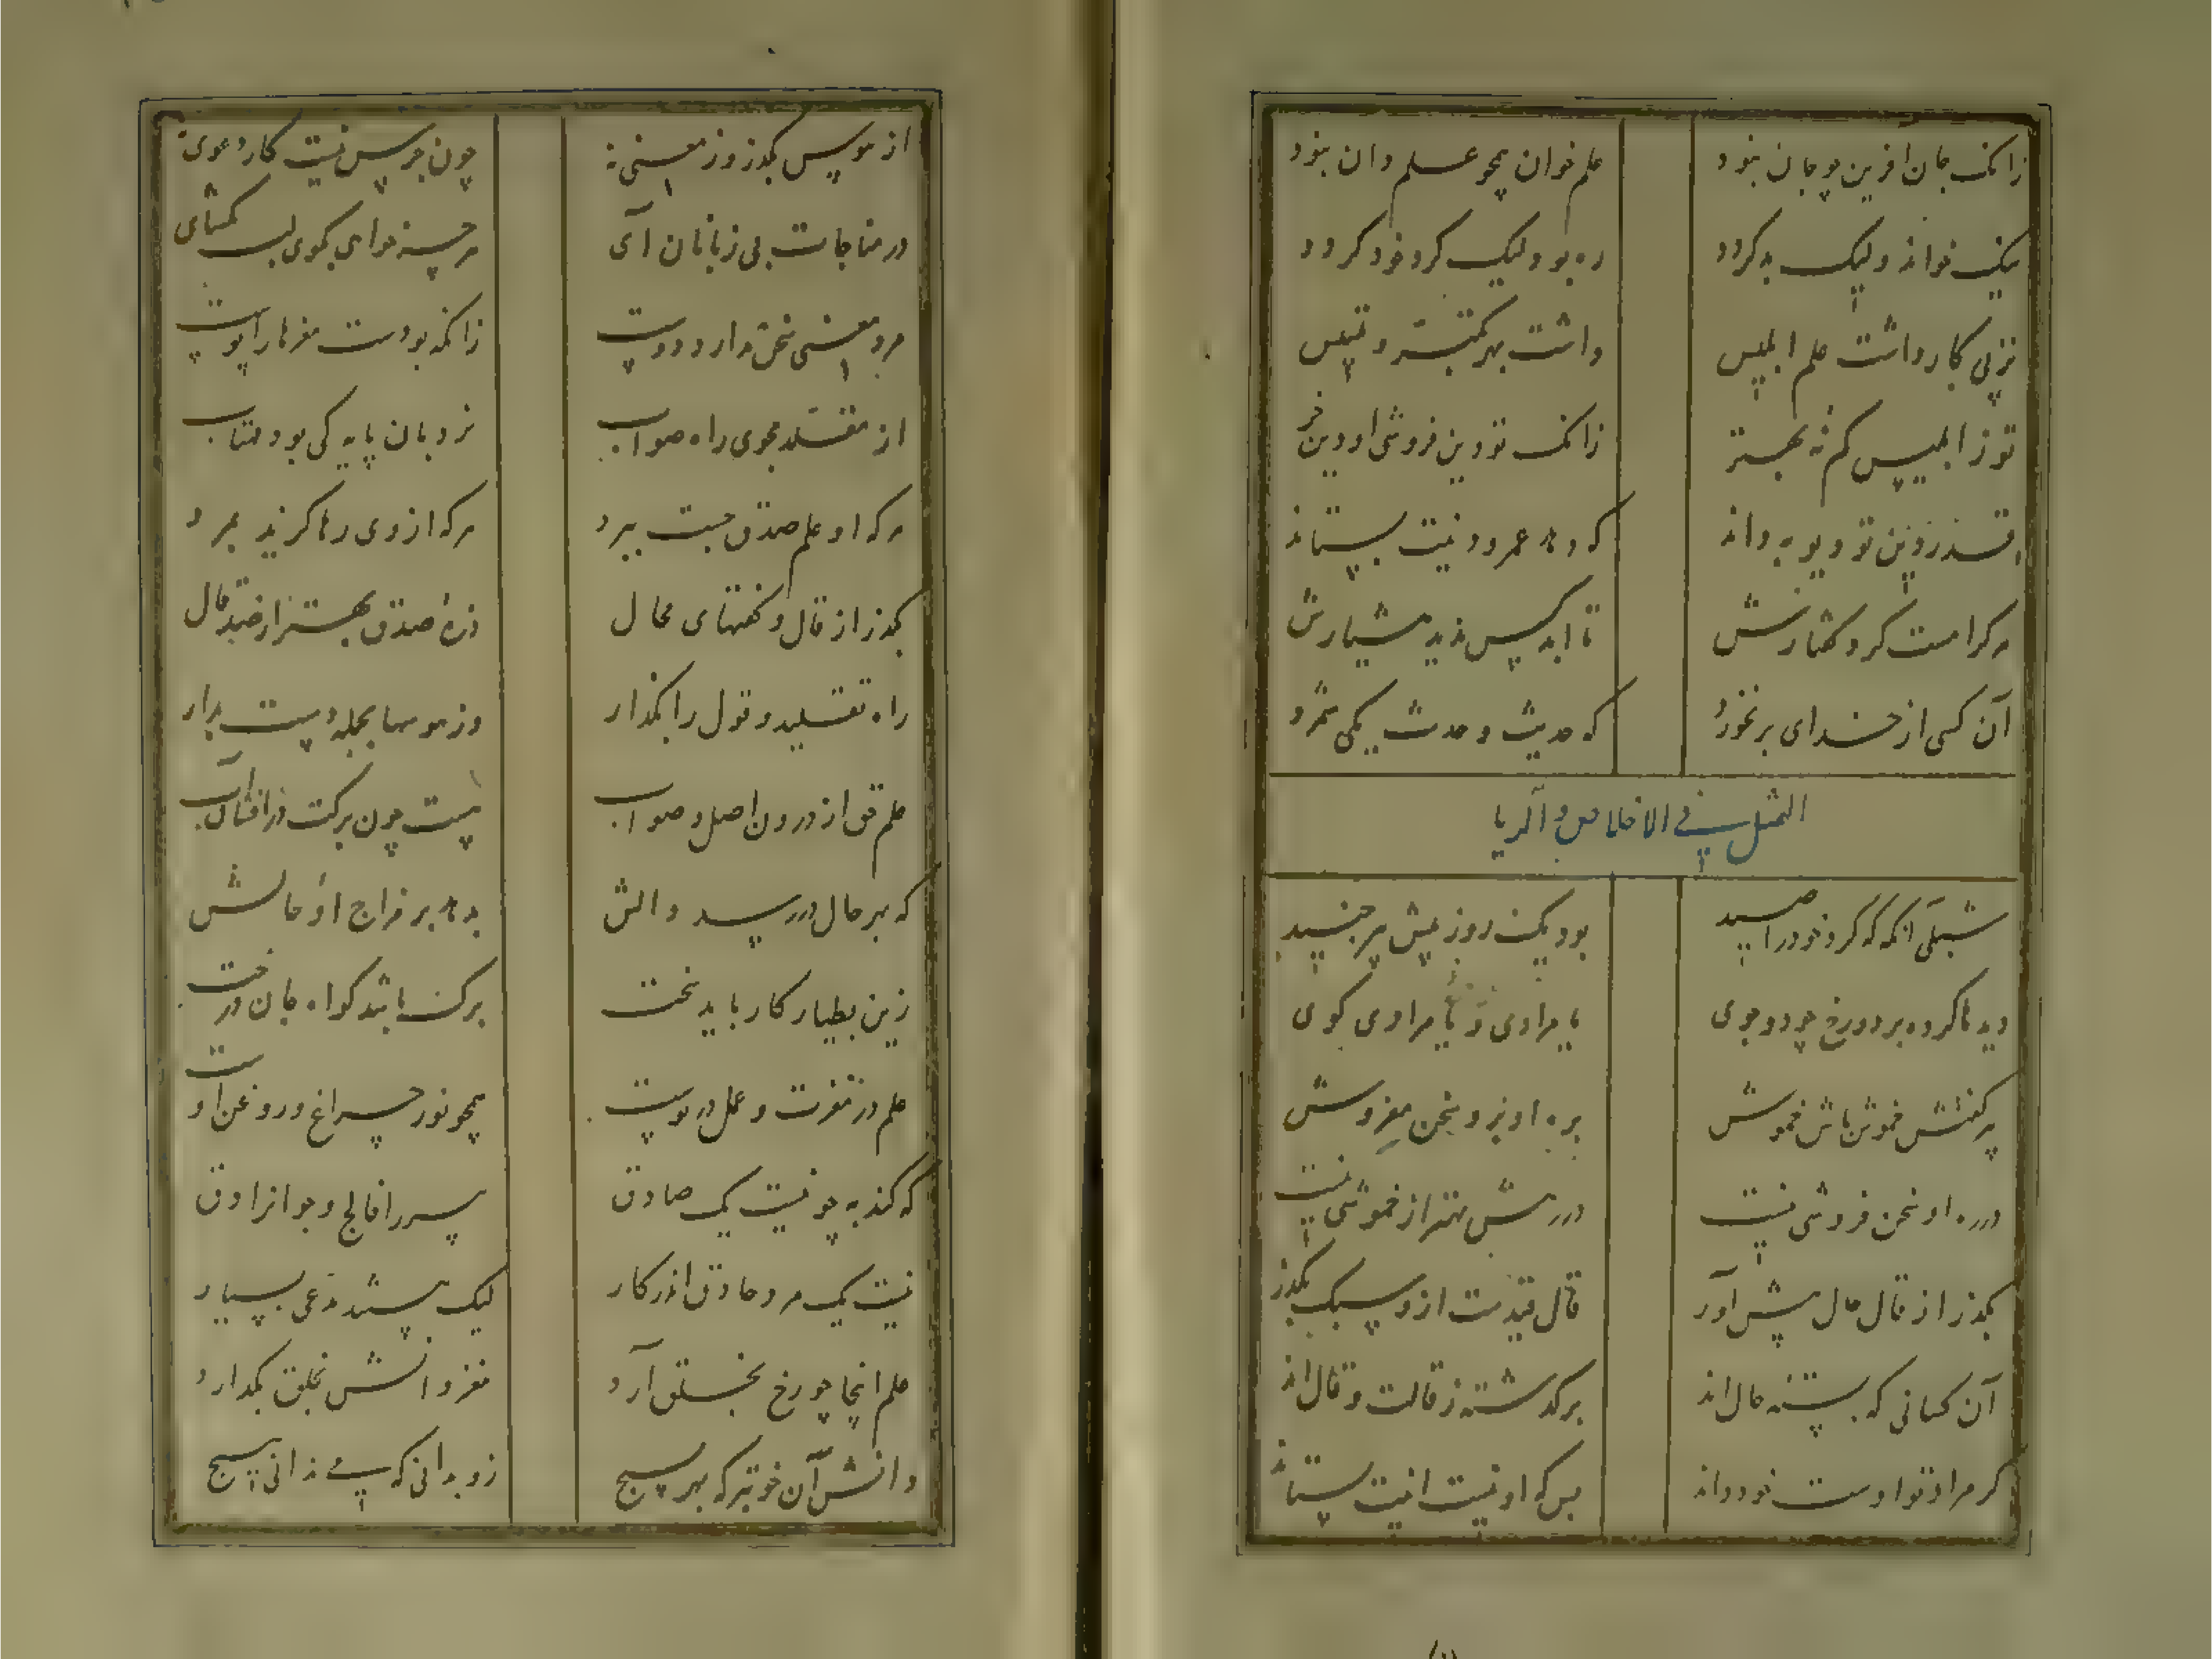 زانک جان افرین چو جان نبود علم خوان همچو علم دان نبود
نیک خواند ولیک بد کردد ره بود ولیک کرد خود کردد
نز پی کار داشت علم ابلیس داشت بهر تکبر و تلبیس
تو ز ابلیس کم نه بهتر زانک تو دین فروشی او دین خر
قدر دین تو دیو به داند که دهد عمر و دینت بستاند
هرکرا مست کرد گفتارش تا ابد کس ندید هشیارش
آن کسی از خدای برنخورد که حدیث و حدث یکی شمرد
التمثیل فی الاخلاص و الریا
شبلی آنکه که کرد خود را صید بود یک روز پیش پیر جنید
دیده ها کرده بر دو رخ چو دو جوی یا مرادی و یا مرادی کوی
پیر گفتش خموش باش خموش بر ره او برو سخن مفروش
در ره او سخن فروشی نیست در رهش بهتر از خموشی نیست
بگذر از قال حال پیش آور قال قیدست ازو سبک بگذر
آن کسانی که بسته حال اند برگذشته ز قالت و قال اند
کر مراد تو اوست خود داند پس که او نیست اینت بستاند
از هوس بگذر و ز معنی نه چون جرس نیست کار دعوی نه
در مناجات بی زبانان آی هرچه خواهی بگوی لب مگشای
مرد معنی سخن ندارد دوست زانکه بودست مغزها را پوست
از مقلد مجوی راه صواب نردبان پایه کی بود مهتاب
هر که او علم صدق جست ببرد هر که از وی رها کرید بمرد
بگذر از قال و گفتهای محال ذره صدق بهتر از صد قال
راه تقلید و قول را بگذار وز هوسها بجمله دست بدار
علم حق از درون اصل و صواب نیست چون برکت در افتاب
که بهر حال در رسد دالش بدهد بر مزاج او حالش
زین بطیار کار باید نخست برک باشد کواه جان درخت
علم در مغزت و عمل در پوست همچو نور چراغ و روغن اوست
که کند به چو نیست یک صادق پسر را فالج و جوانرا دق
نیست یک مرد حاذق اندر کار لیک هستند مدعی بسیار
علم انجا چو رخ بخلق آرد مغز دانش بخلق بگذارد
دانش آن خوبتر که بهر بسیج زو بدانی که می ندانی هیچ